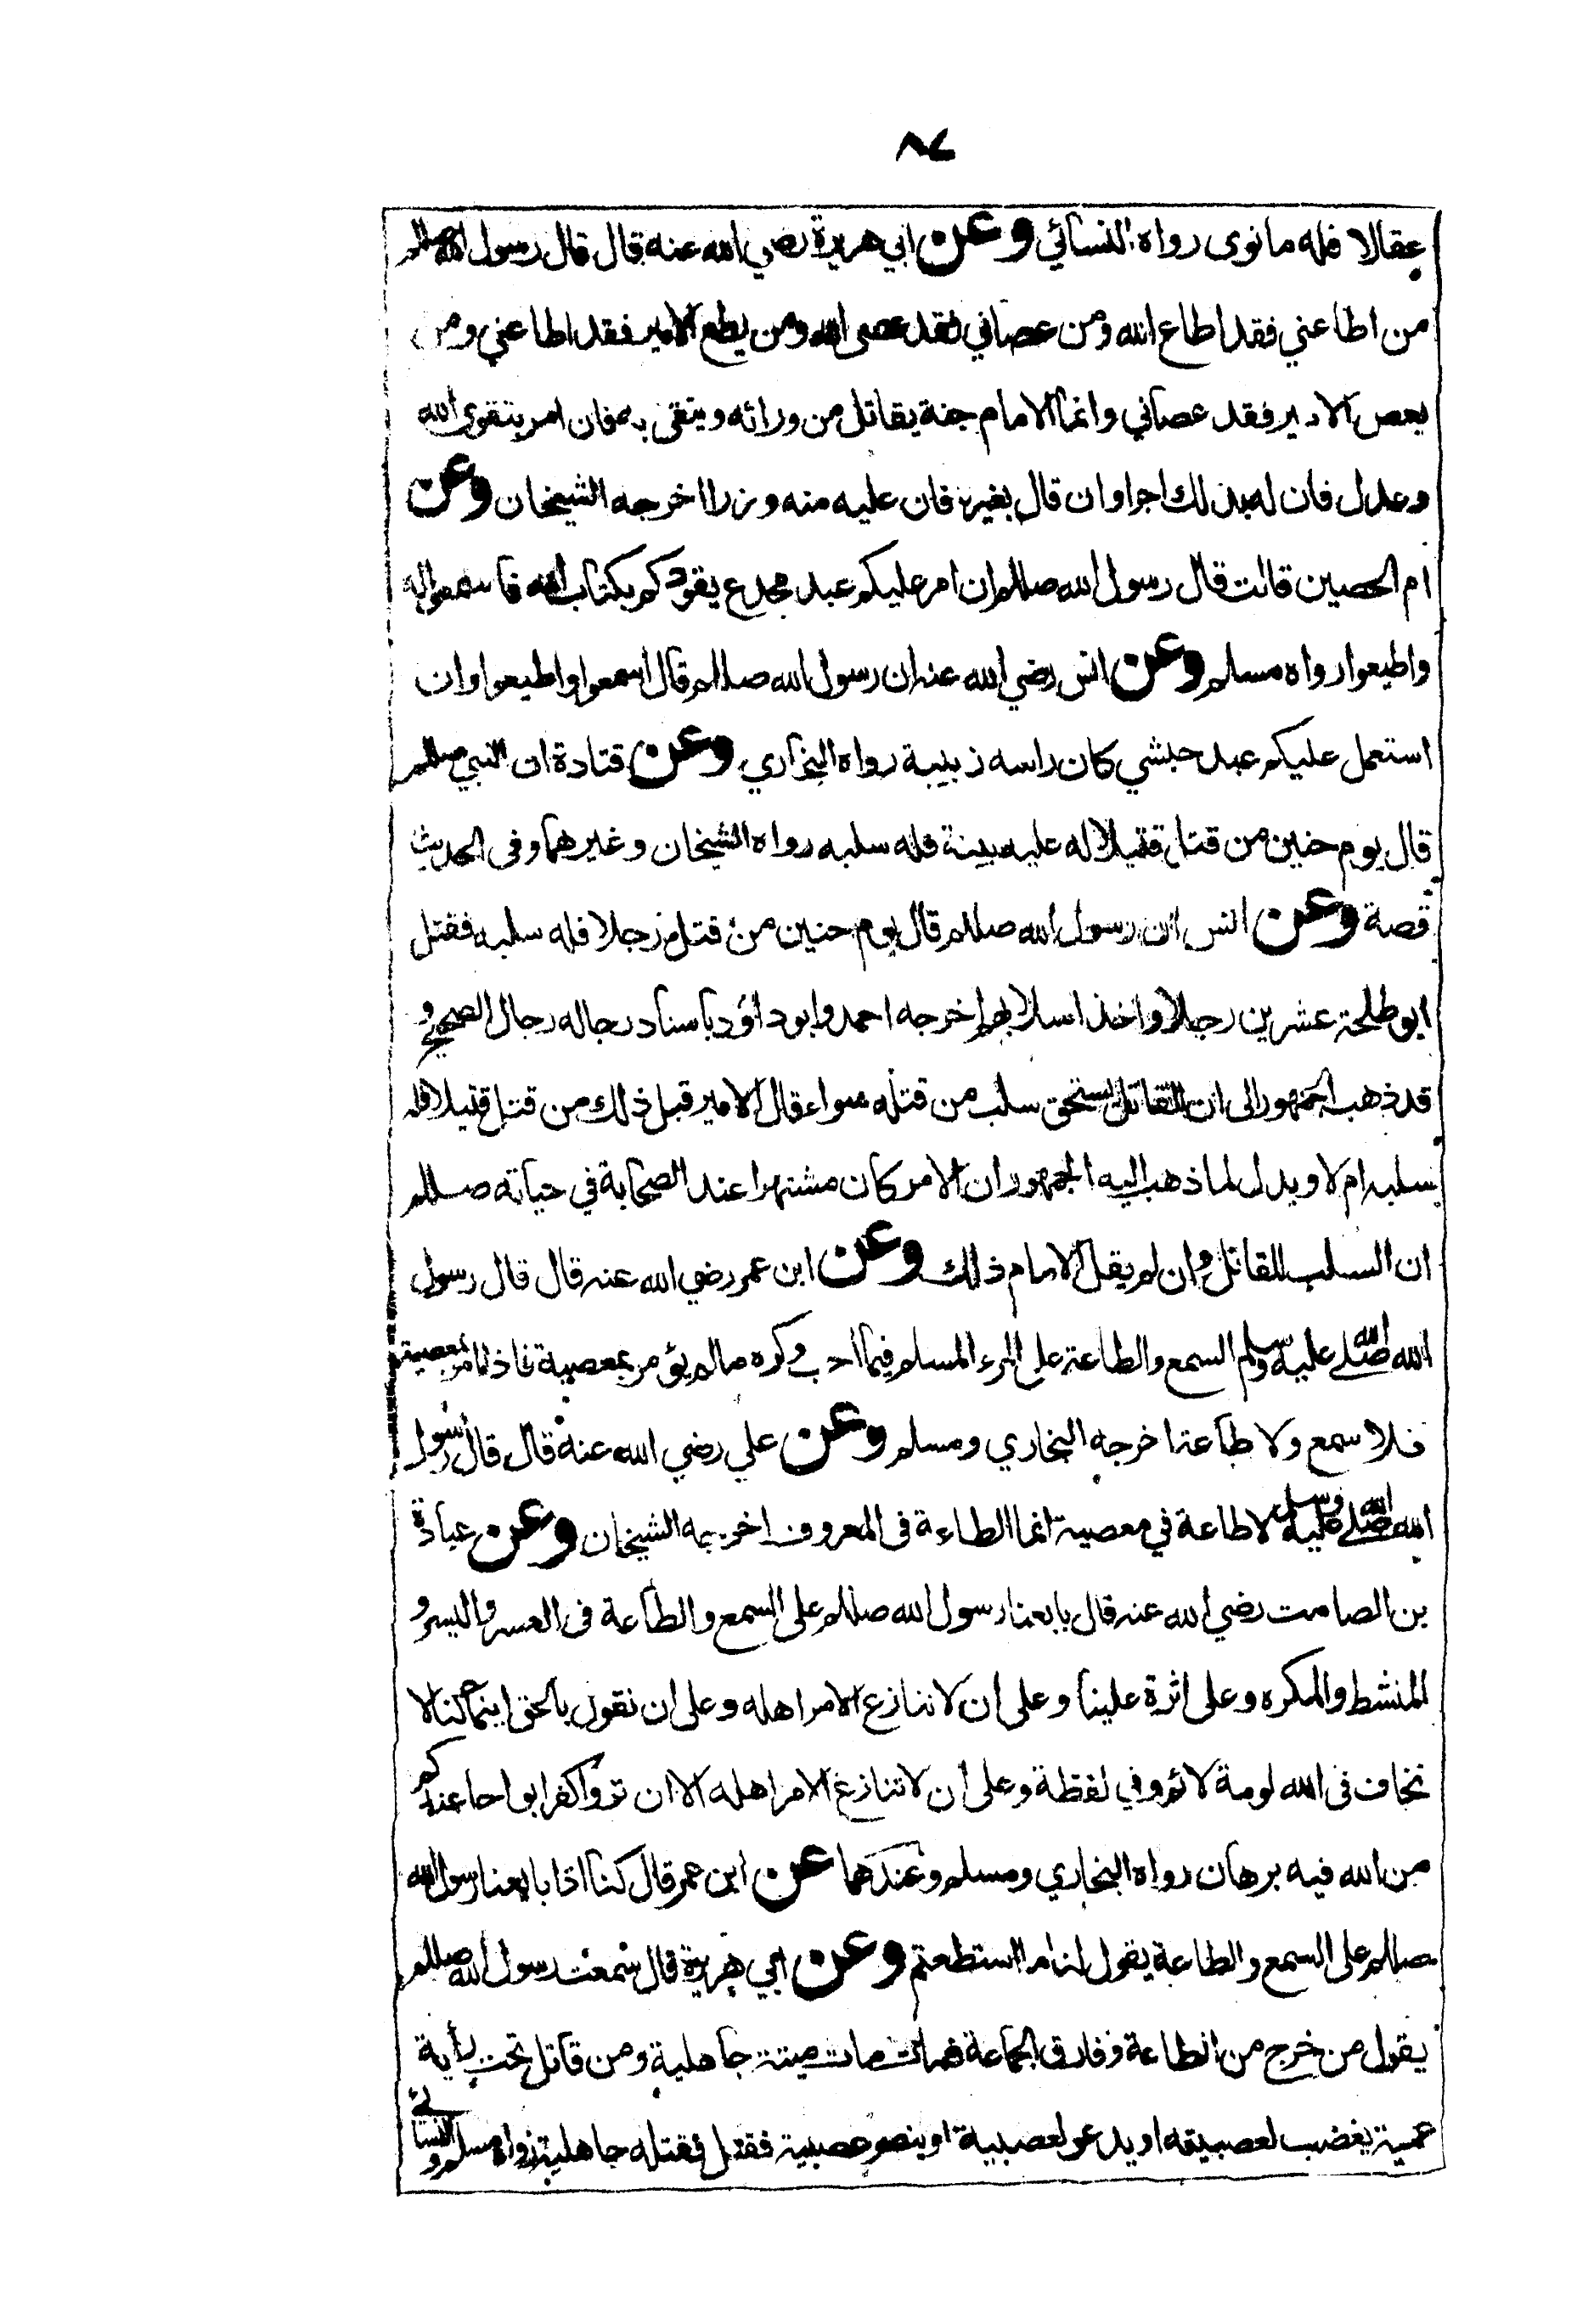 ٨٤
عقالا فله ما نوى رواه النسائي وعن ابي هريرة رضي الله عنه قال قال رسول الله صللم
من اطاعني فقد اطاع الله ومن عصاني فقد عصى الله ومن يطع الامير فقد اطاعني ومن
يعص الامير فقد عصاني وانما الامام جنة يقاتل من ورائه ويتقى به فان امر بتقوى الله
وعدل فان له بذلك اجرا وان قال بغيره فان عليه منه وزرا اخرجه الشيخان وعن
ام الحصين قالت قال رسول الله صللم ان امر عليكم عبد مجدع يقودكم بكتاب الله فاسمعوا له
واطيعوا رواه مسلم وعن انس رضي الله عنه ان رسول الله صللم قال اسمعوا واطيعوا وان
استعمل عليكم عبد حبشي كان راسه زبيبة رواه البخاري وعن قتادة ان النبي صللم
قال يوم حنين من قتل قتيلا له عليه بينة فله سلبه رواه الشيخان وغيرهما وفى الحديث
قصة وعن انس ان رسول الله صللم قال يوم حنين من قتل رجلا فله سلبه فقتل
ابو طلحة عشرين رجلا واخذ اسلابهم اخرجه احمد وابو داؤد باسناد رجاله رجال الصحيح و
قد ذهب الجمهور الى ان القاتل يستحق سلب من قتله سواء قال الامير قبل ذلك من قتل قتيلا فله
سلبه ام لا ويدل لما ذهب اليه الجمهور ان الامر كان مشتهرا عند الصحابة في حياته صللم
ان السلب للقاتل وان لم يقل الامام ذلك وعن ابن عمر رضي الله عنه قال قال رسول
الله صلى الله عليه وسلم السمع والطاعة على المرء المسلم فيما احب وكره ما لم يؤمر بمعصية فاذا امر بمعصية
فلا سمع ولا طاعة اخرجه البخاري ومسلم وعن علي رضي الله عنه قال قال رسول
الله صلى الله عليه وسلم لا طاعة في معصية انما الطاعة فى المعروف اخرجه الشيخان وعن عبادة
بن الصامت رضي الله عنه قال بايعنا رسول الله صللم على السمع والطاعة فى العسر واليسر و
المنشط والمكره وعلى اثرة علينا وعلى ان لا ننازع الامر اهله وعلى ان نقول بالحق اينما كنا لا
نخاف فى الله لومة لائم وفي لفظة وعلى ان لا تنازع الامر اهله الا ان تروا كفرا بواحا عندكم
من الله فيه برهان رواه البخاري ومسلم وعندهما عن ابن عمر قال كنا اذا بايعنا رسول الله
صللم على السمع والطاعة يقول لنا ما استطعتم وعن ابي هريرة قال سمعت رسول الله صللم
يقول من خرج من الطاعة وفارق الجماعة فمات مات ميتة جاهلية ومن قاتل تحت راية
عمية يغضب لعصبيته او يدعو لعصبية او ينصر عصبية فقتل فقتله جاهلية رواه مسلم والنسائي